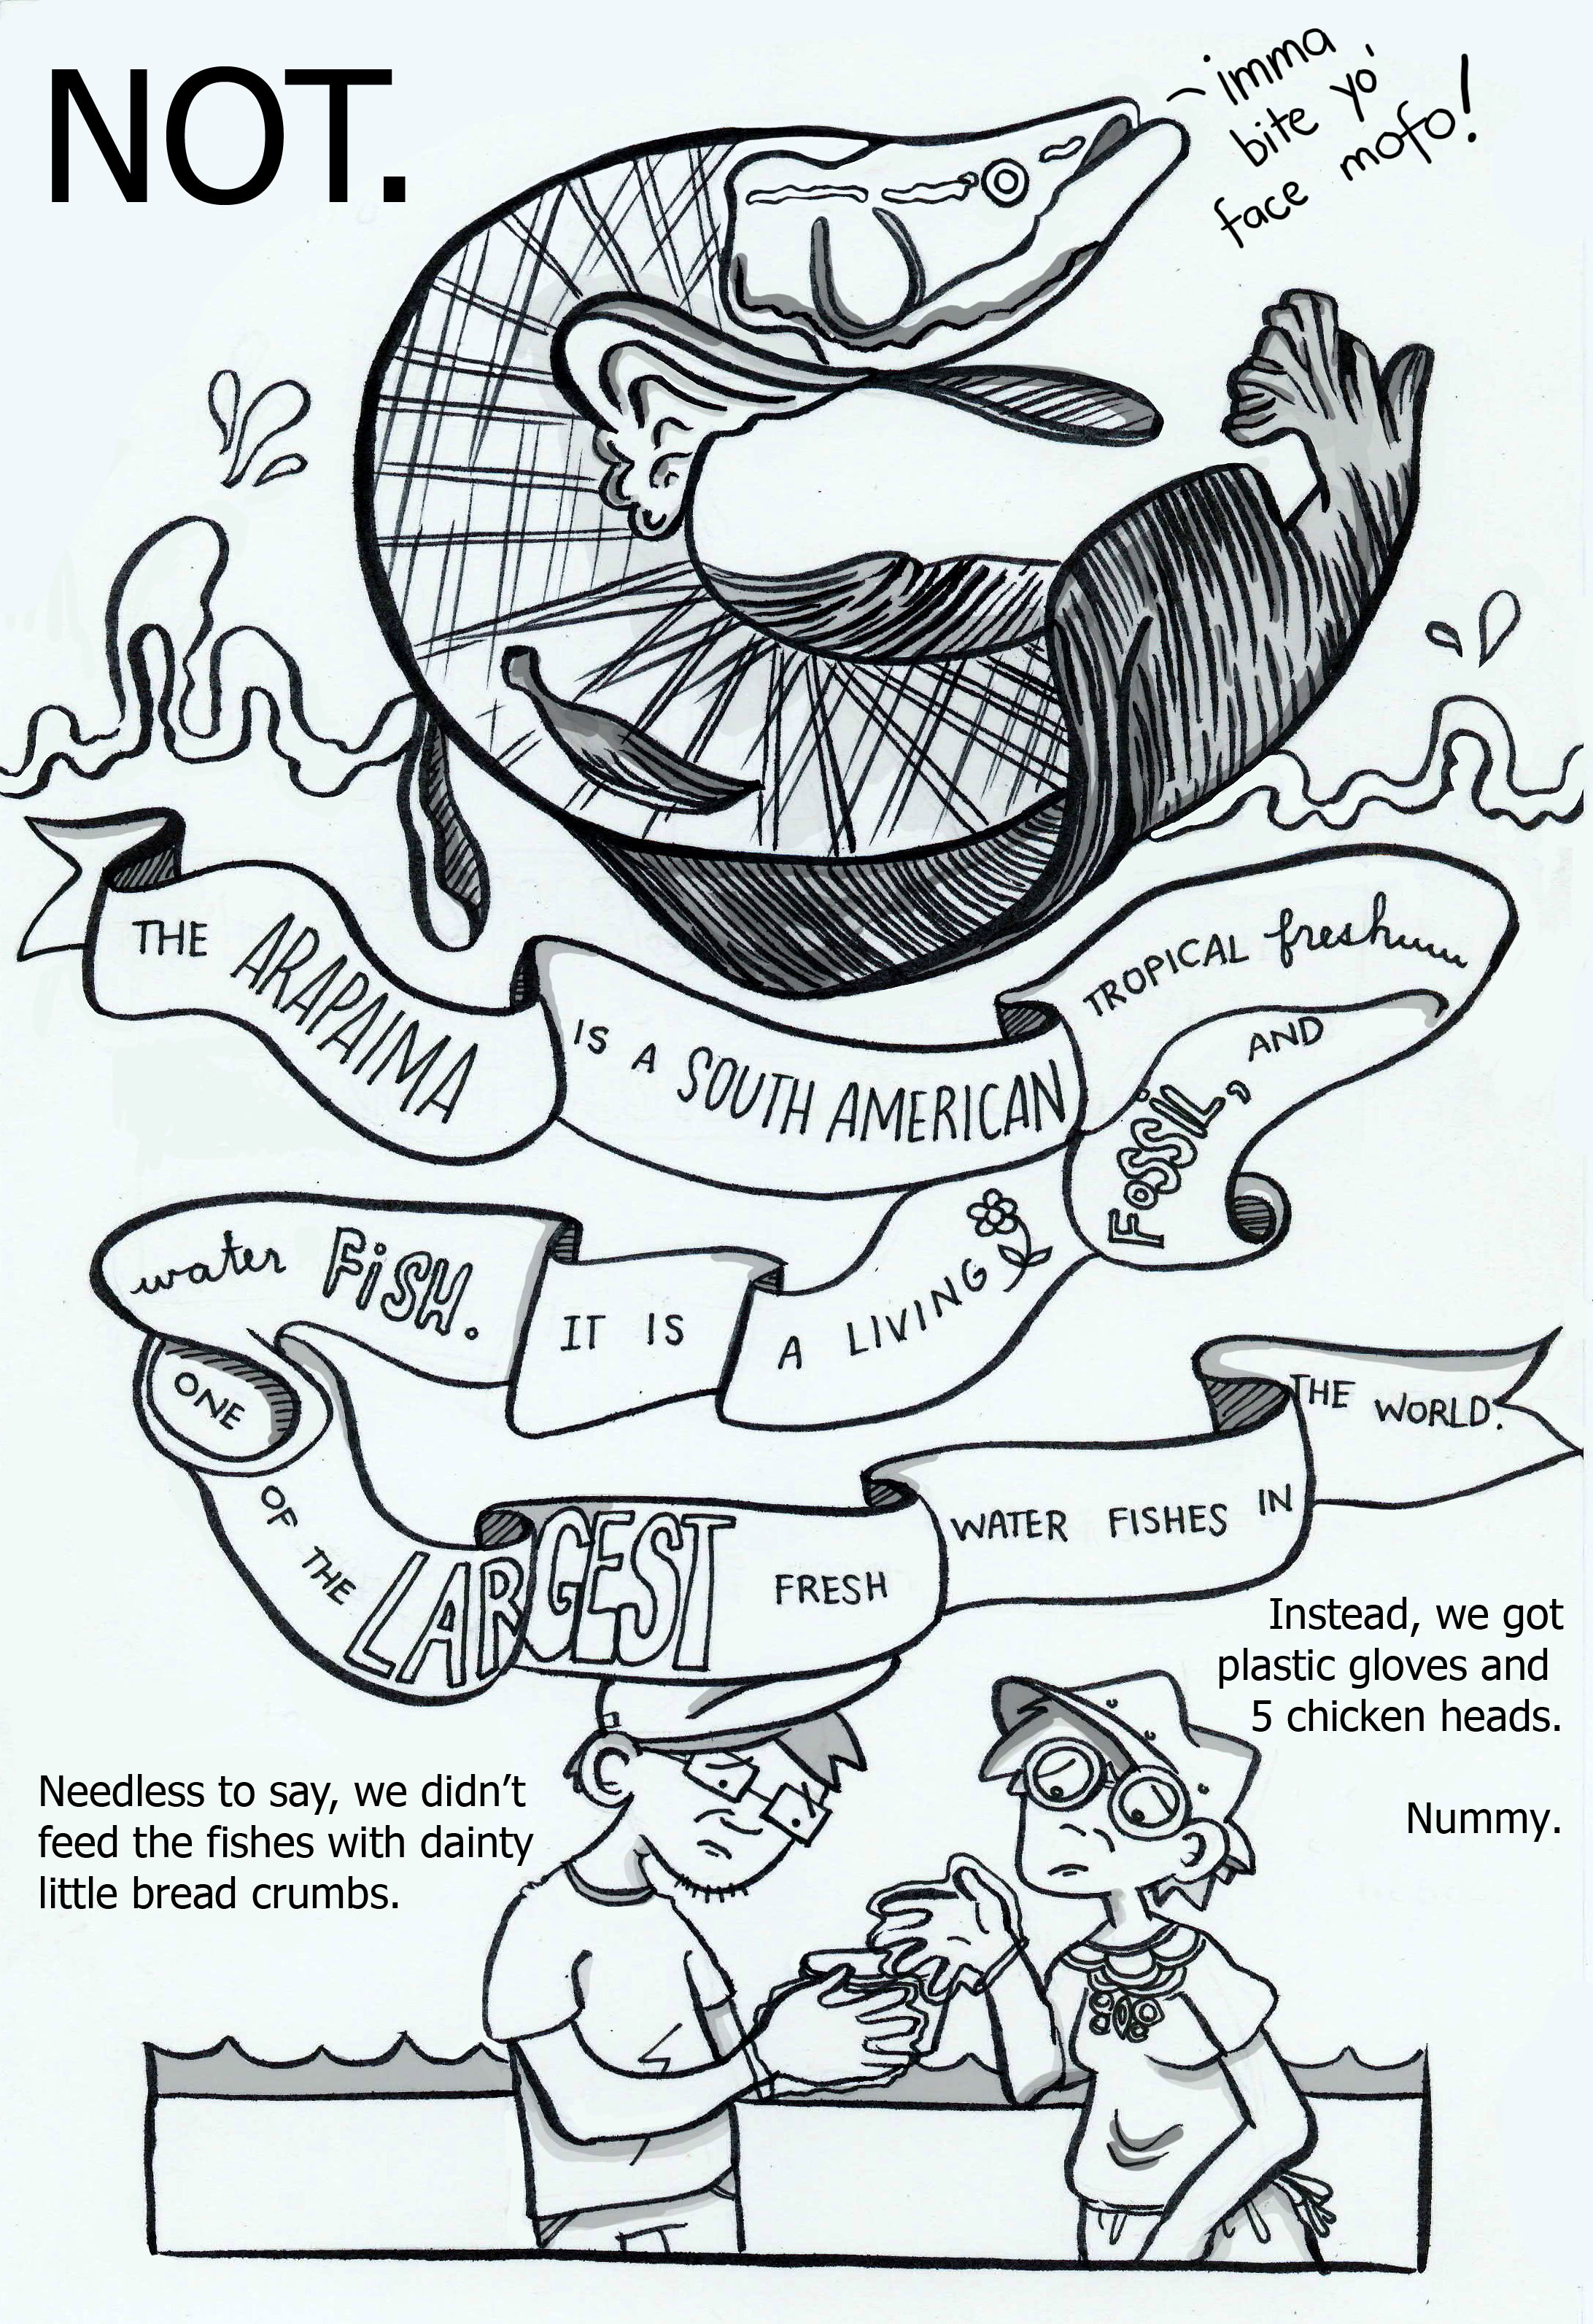 NOT.
imma
bite yo'
face mofo!
THE ARAPAIMA IS A SOUTH AMERICAN TROPICAL fresh
water FiSH. IT IS A LIVING FoSSiL, AND
ONE OF THE LARGEST FRESH WATER FISHES IN THE WORLD.
Instead, we got
plastic gloves and
5 chicken heads.
Nummy.
Needless to say, we didn't
feed the fishes with dainty
little bread crumbs.